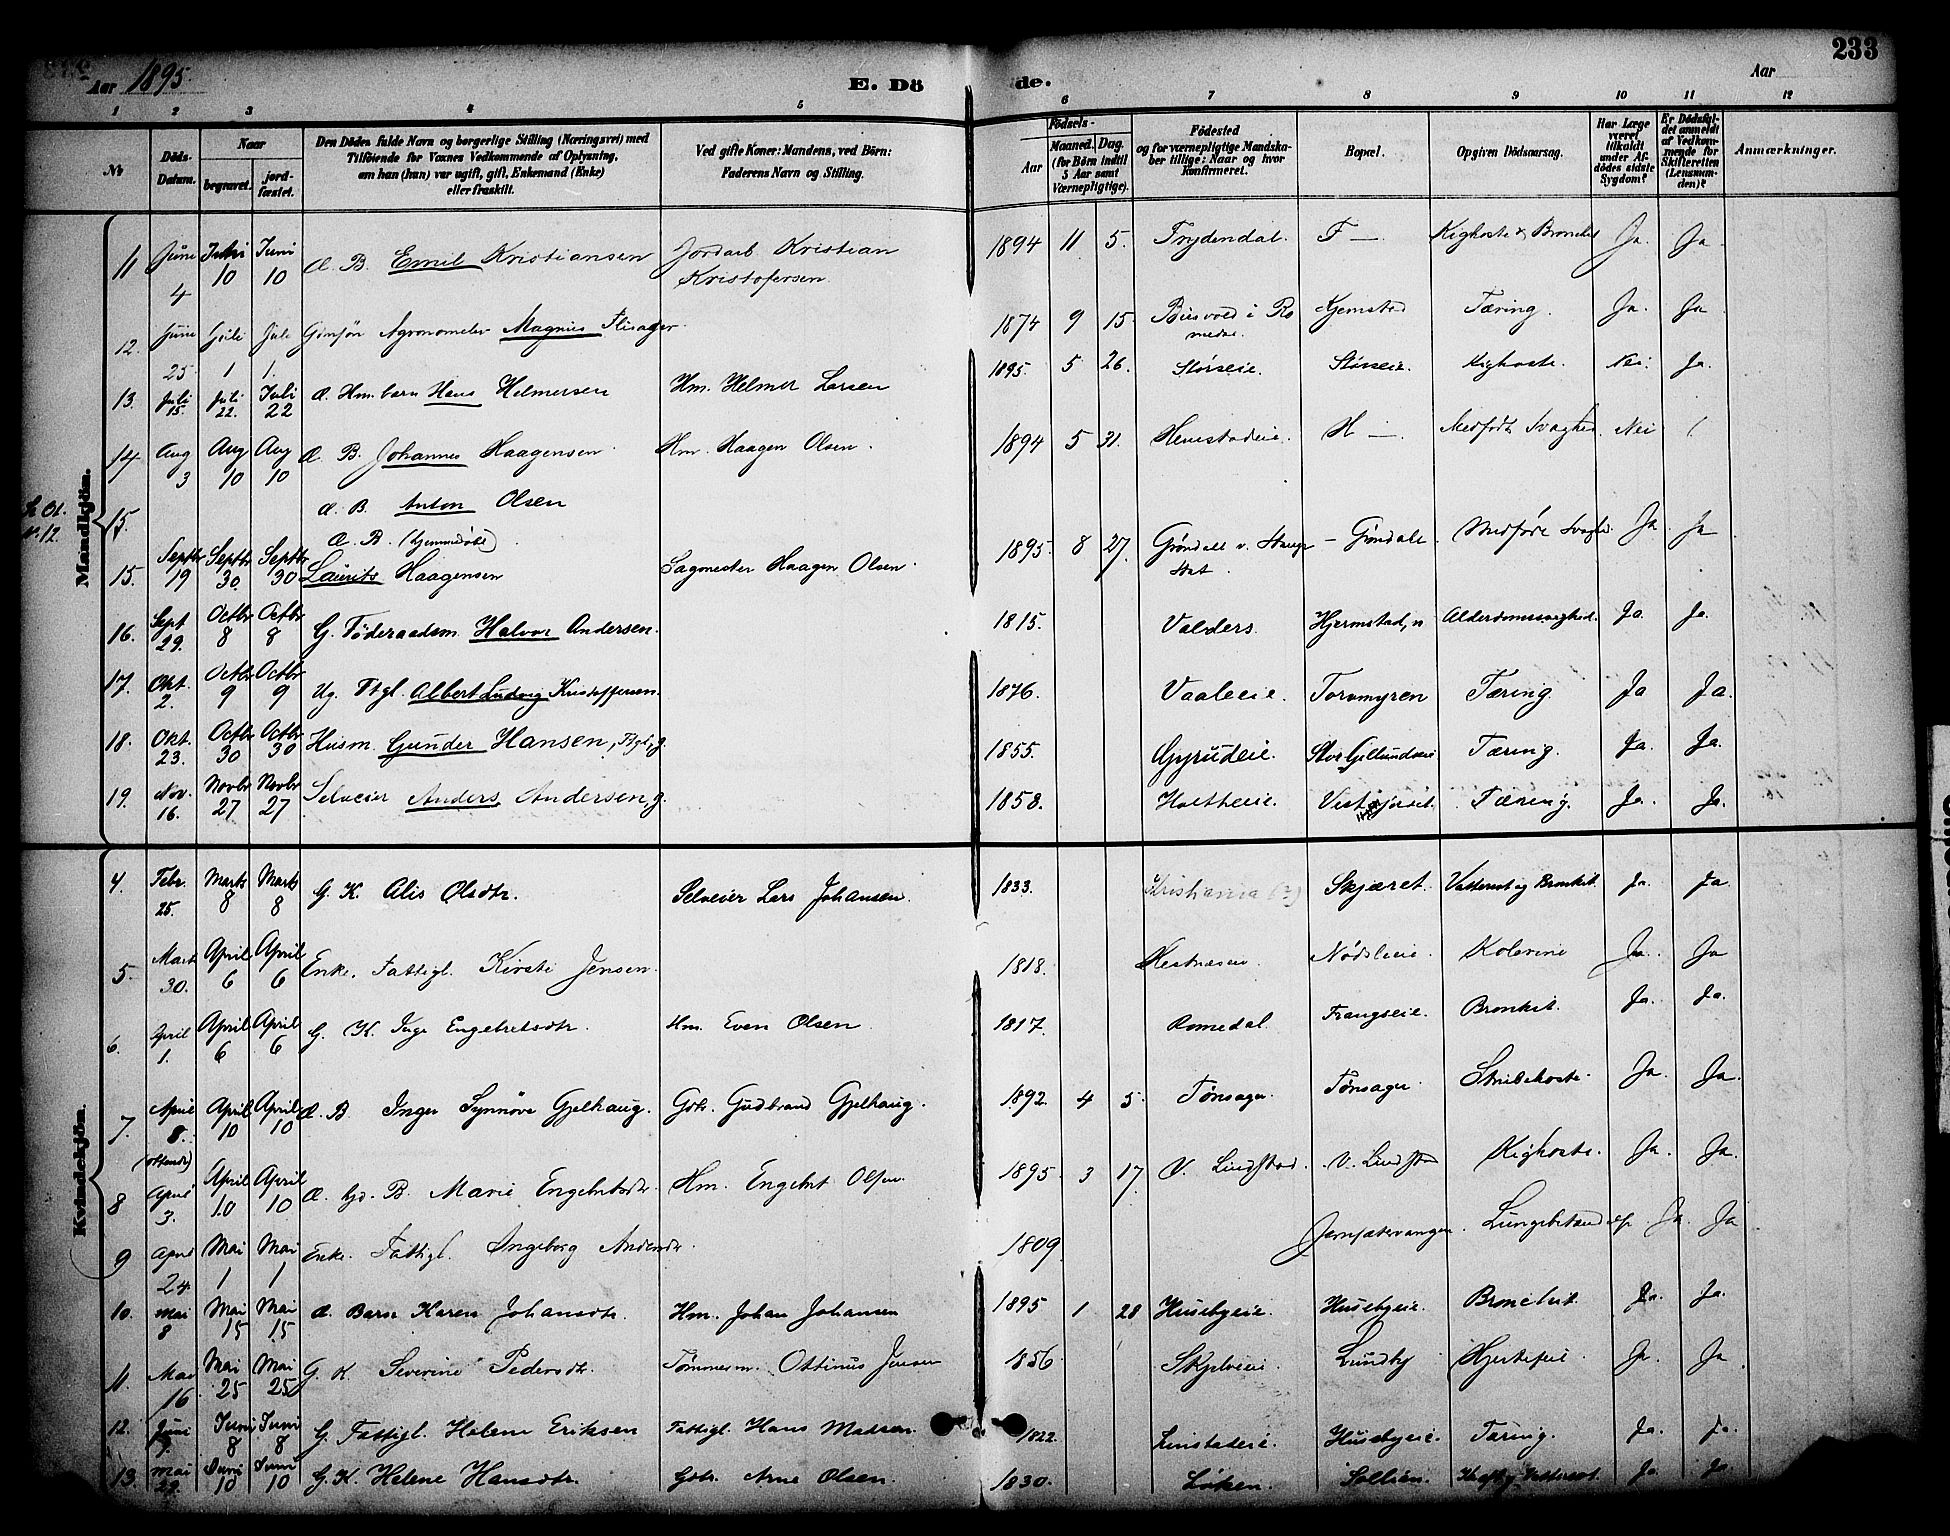 233
Aar 1895.
E. Dö de.
Aar
1 2 3 4 5 6 7 8 9 10 11 12
No
Döds-Datum.
Naar
begravet.
jord-fæstet.
Den Dödes fulde Navn og borgerlige Stilling (Næringsvei) med
Tilföiende for Voxnes Vedkommende af Oplysning,
om han (hun) var ugift, gift, Enkemand (Enke)
eller fraskilt.
Ved gifte Koner: Mandens, ved Börn:
Faderens Navn og Stilling.
Födsels-
Aar
Maaned. Dag.
(for Börn indtil 5 Aar samt Værnepligtige).
Födested
og for værnepligtige Mandskaber tillige: Naar og hvor konfirmeret.
Bopæl.
Opgiven Dödsaarsag.
Har Læge været tilkaldt under Afdödes sidste Sygdom?
Er Dödsfaldet anmeldt af Vedkommende for Skifteretten (Lensmanden)?
Anmærkninger.
Mandkjön.
11 Juni 4 Juni 10 Juni 10 Æ. B. Emil Kristiansen Jordarb Kristian Kristofersen 1894 11 5. Frydendal. F — Kighoste Ja. Ja
12. Juni 25 Juli 1 Juli 1. Agronomelev Magnus Flisager. 1874 9 15 i Romedal Hjemstad Tæring. Ja. Ja
13. Juli 15 Juli 22. Juli 22 Æ. Hm. barn Hans Helmersen Hm. Helmer Larsen 1895. 5 26. Størseie. Størseie. Kighoste. Nei Ja.
14 Aug 3 Aug 10 Aug 10 Æ. B. Johannes Haagensen. Hm. Haagen Olsen. 1894 5 31. Hemstadeie. H — Medfødt Svaghed. Nei
15. Æ. B. Anton Olsen
15. Septbr 19 Septbr 30. Septbr 30 Æ. B. (hjemmedøbt) Laurits Haagensen Sagmester Haagen Olsen. 1895. 8 27. Grøndale v. Stange Stat. – Grøndale. Medfødt Svaghed Ja Ja
16. Sept 29. Octbr 8 Octbr 8 G. Føderaadsm. Halvor Andersen. 1815. Valders. Hjermstad, n Alderdomssvaghed. Ja. Ja.
17. Okt. 2. Octbr 9 Octbr 9 Ug. Ftgl. Albert Ludvig Kristoffersen. 1876. Vaaleeie. Torvmyren Tæring. Ja Ja.
18. Okt. 23. Octbr 30 Octbr 30 Husm. Gunder Hansen, Ftgl, g. 1855. Gyrudeie. Tæring. Ja. Ja.
19. Nov. 16. Novbr 27 Novbr 27 Selveier Anders Andersen g. 1858. Holtheeie. Tæring. Ja. Ja.
Kvindekjön.
4. Febr. 25. Marts 8 Marts 8 G. K. Alis Olsdtr. Selveier Lars Johansen. 1833. Kristiania (?) Skjæret. Vattersot og Bronkit. Ja. Ja
5. Mart 30. April 6 April 6 Enke. Fattigl. Kirsti Jensen. 1818. Nødsleeie. Kolerine Ja. Ja
6. April 1. April 6 April 6 G. K. Inge Engebretsdtr. Hm. Even Olsen. 1817. Romedal. Frangseie. Bronkit. Ja. Ja.
7. April 8. (ottende) April 10 April 10 Æ. B Inger Synnøve Gjelhaug. Gbr. Gudbrand Gjelhaug. 1892. 4 5. Tønsager. Tønsager Strubehoste. Ja. Ja.
8 April 3. April 10 April 10 Æ. hjd. B. Marie Engebretsdtr. Hm. Engebret Olsen. 1895. 3 17. V. Lindstad. V. Lindstad Kighoste. Ja. Ja.
9 April 24. Mai 1 Mai 1 Enke. Fattigl. Ingeborg Andersdtr. 1809. Lungebetændelse Ja. Ja
10. Mai 8 Mai 15 Mai 15 Æ. Barn Karen Johansdtr. Hm. Johan Johansen 1895 1 28 Husebyeie. Husebyeie. Bronchit. Ja. Ja.
11. Mai 16 Mai 25 Mai 25 G. K Severine Pedersdtr. Tømmerm. Ottinus Jensen 1856 Lundby Hjertefeil Ja. Ja
12. Juni Juni 8 Juni 8 G. Fattigl. Helene Eriksen Fattigl. Hans Madsen. 1822. Linstadeie. Husebyeie. Tæring. Ja. Ja.
13. Mai 29. Juni 10 Juni 10 G. K. Helene Hansdtr. Gbr. Arne Olsen. 1830. Løken. Sollien. Ja. Ja.